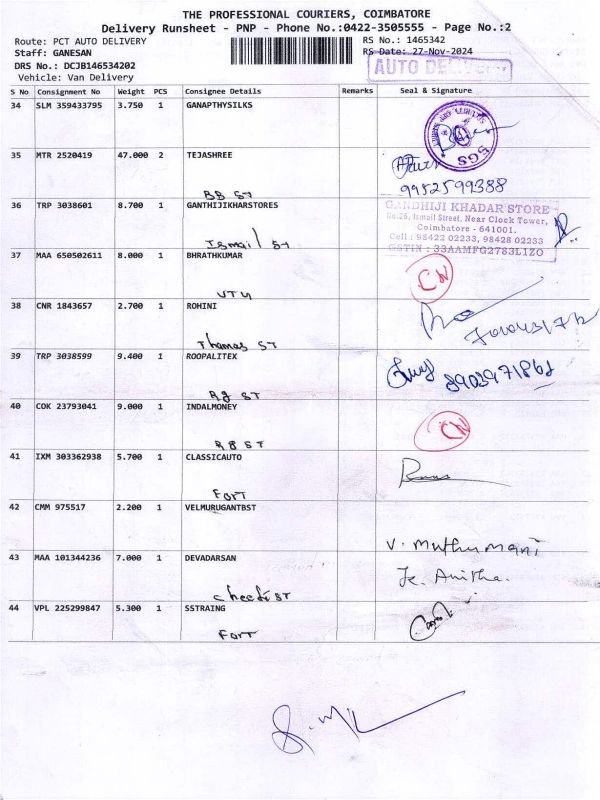 THE PROFESSIONAL COURIERS, COIMBATORE
Delivery Runsheet - PNP - Phone No.:0422-3505555 - Page No.:2
Route: PCT AUTO DELIVERY RS No.: 1465342
Staff: GANESAN RS Date: 27-Nov-2024
DRS No.: DCJB146534202 AUTO DELIVERY
Vehicle: Van Delivery
S No Consignment No Weight PCS Consignee Details Remarks Seal & Signature
34 SLM 359433795 3.750 1 GANAPTHYSILKS
SGS
35 MTR 2520419 47.000 2 TEJASHREE
BB ST 9952599388
36 TRP 3038601 8.700 1 GANTHIJIKHARSTORES
GANDHIJI KHADAR STORE
No.26, Ismail Street, Near Clock Tower,
Coimbatore - 641001.
Cell : 98422 02233, 98428 02233
GSTIN : 33AAMFG2783L1ZO
Ismail ST
37 MAA 650502611 8.000 1 BHRATHKUMAR
CN
38 CNR 1843657 2.700 1 ROHINI
Thomas ST
39 TRP 3038599 9.400 1 ROOPALITEX
RG ST
40 COK 23793041 9.000 1 INDALMONEY
CN
RB ST
41 IXM 303362938 5.700 1 CLASSICAUTO
Fort
42 CMM 975517 2.200 1 VELMURUGANTBST
V. Muthumani
43 MAA 101344236 7.000 1 DEVADARSAN
K. Anitha.
44 VPL 225299847 5.300 1 SSTRAING
Fort